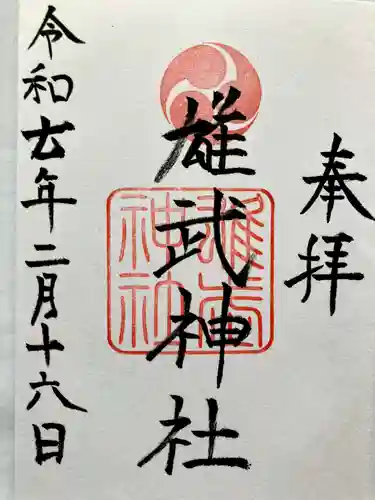 奉拝
雄武神社
雄武
神社
令和七年二月十六日